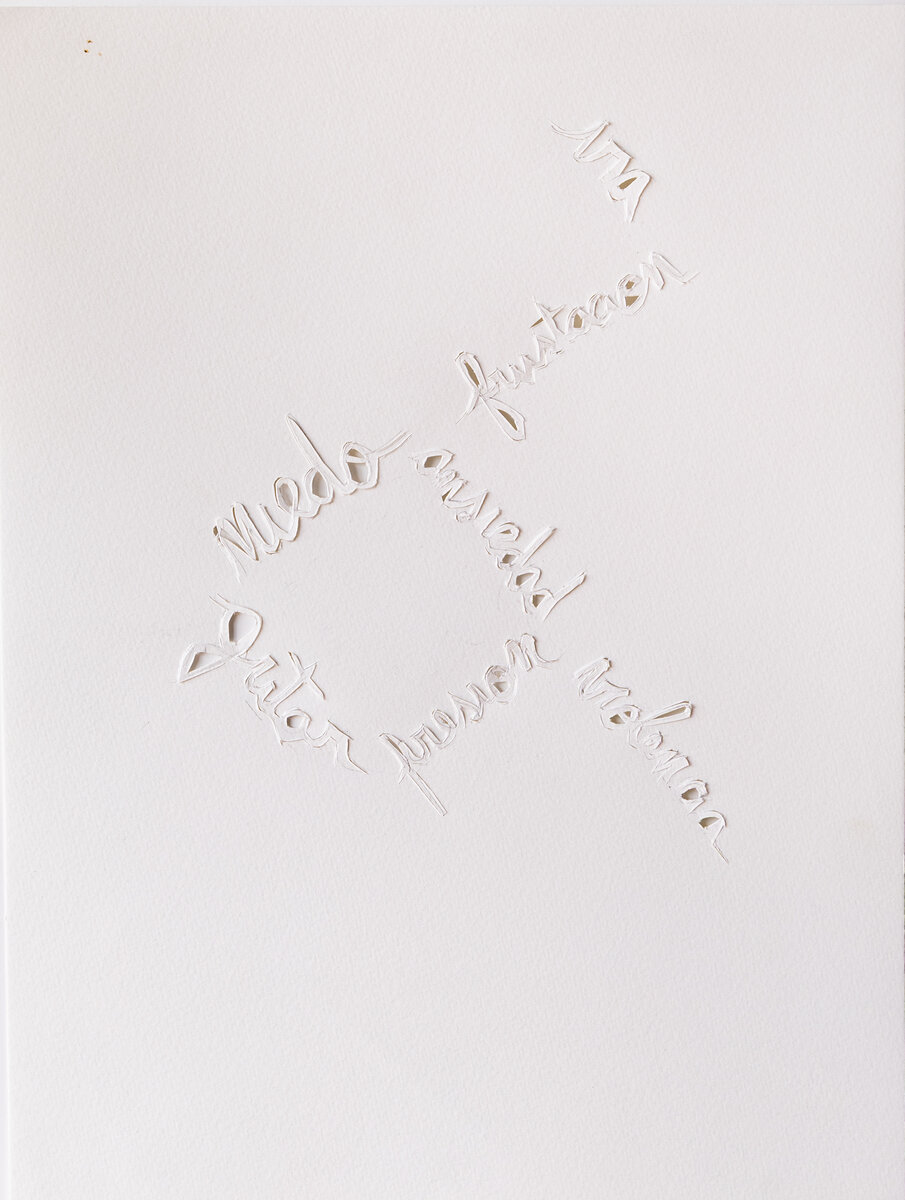 ira
frustacion
Miedo
ansiedad
gritar
presion
violencia